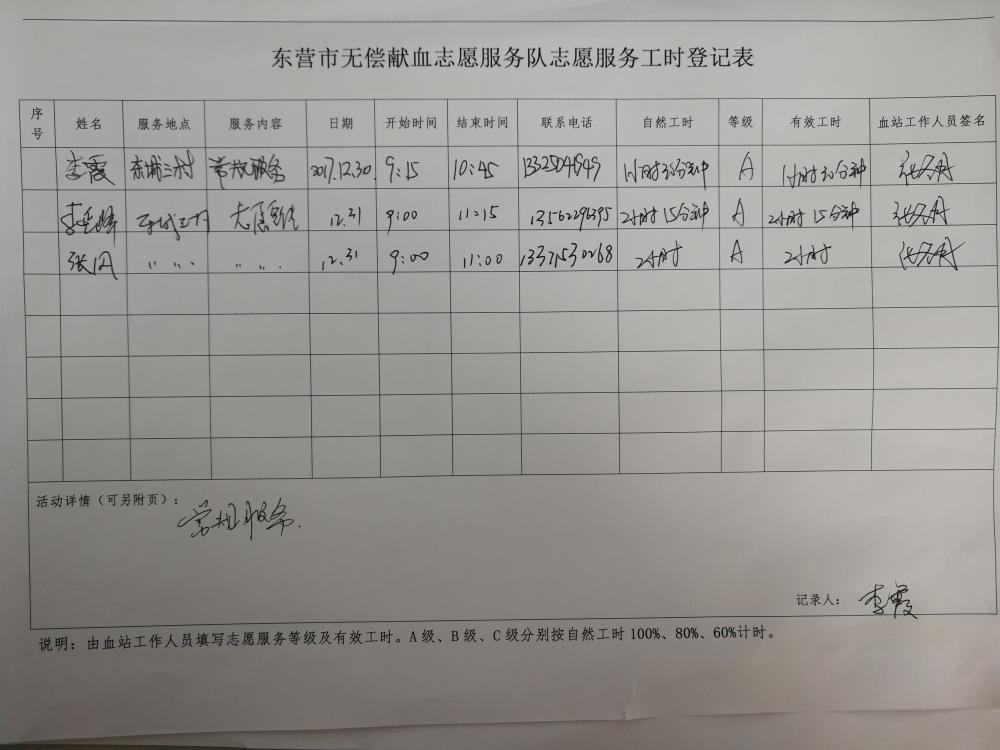 东营市无偿献血志愿服务队志愿服务工时登记表
序号 姓名 服务地点 服务内容 日期 开始时间 结束时间 联系电话 自然工时 等级 有效工时 血站工作人员签名
李霞 东城三村 常规服务 2017.12.30 9:15 10:45 1小时30分钟 A 1小时30分钟
12.31 9:00 11:15 13562296395 2小时15分钟 A 2小时15分钟
张凤 〃 〃 . 〃 〃 . 12.31 9:00 11:00 13371530268 2小时 A 2小时
活动详情（可另附页）：
常规服务.
记录人： 李霞
说明：由血站工作人员填写志愿服务等级及有效工时。A级、B级、C级分别按自然工时100%、80%、60%计时。